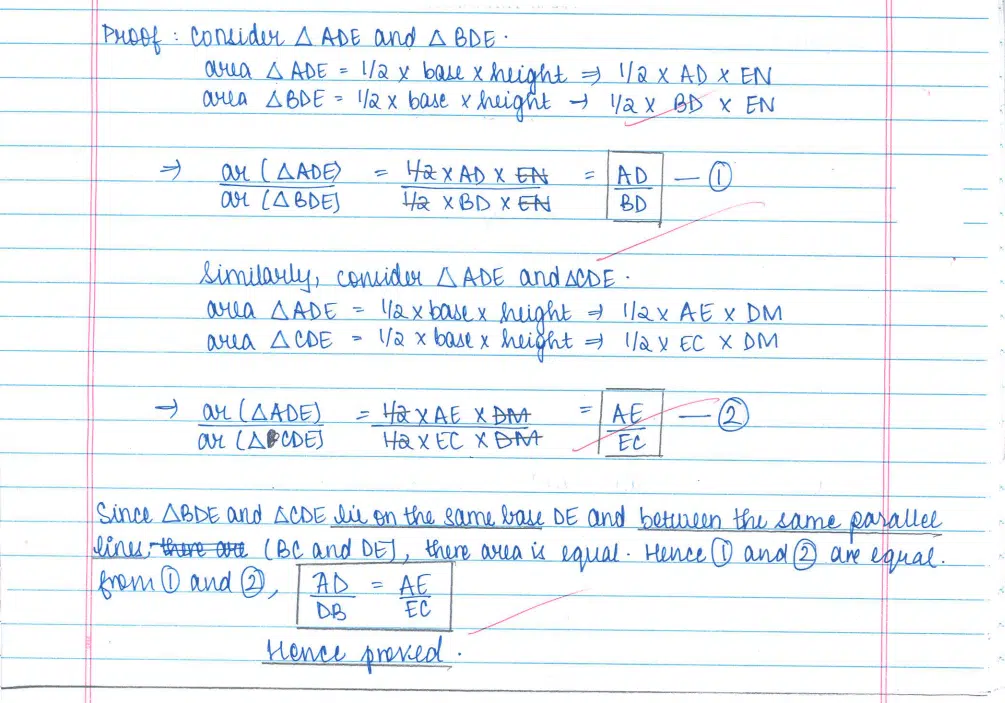 Proof : Consider △ ADE and △ BDE.
area △ ADE = 1/2 x base x height ⇒ 1/2 x AD x EN
area △BDE = 1/2 x base x height → 1/2 x BD x EN
⇒ ar (△ADE) = 1/2 x AD x EN = AD — ①
ar (△BDE) 1/2 x BD x EN BD
Similarly, consider △ ADE and △CDE.
area △ ADE = 1/2 x base x height ⇒ 1/2 x AE x DM
area △ CDE = 1/2 x base x height ⇒ 1/2 x EC x DM
→ ar (△ADE) = 1/2 x AE x DM = AE — ②
ar (△CDE) 1/2 x EC x DM EC
Since △BDE and △CDE lie on the same base DE and between the same parallel
lines there are (BC and DE), there area is equal. Hence ① and ② are equal.
from ① and ②, AD = AE
DB EC
Hence proved.